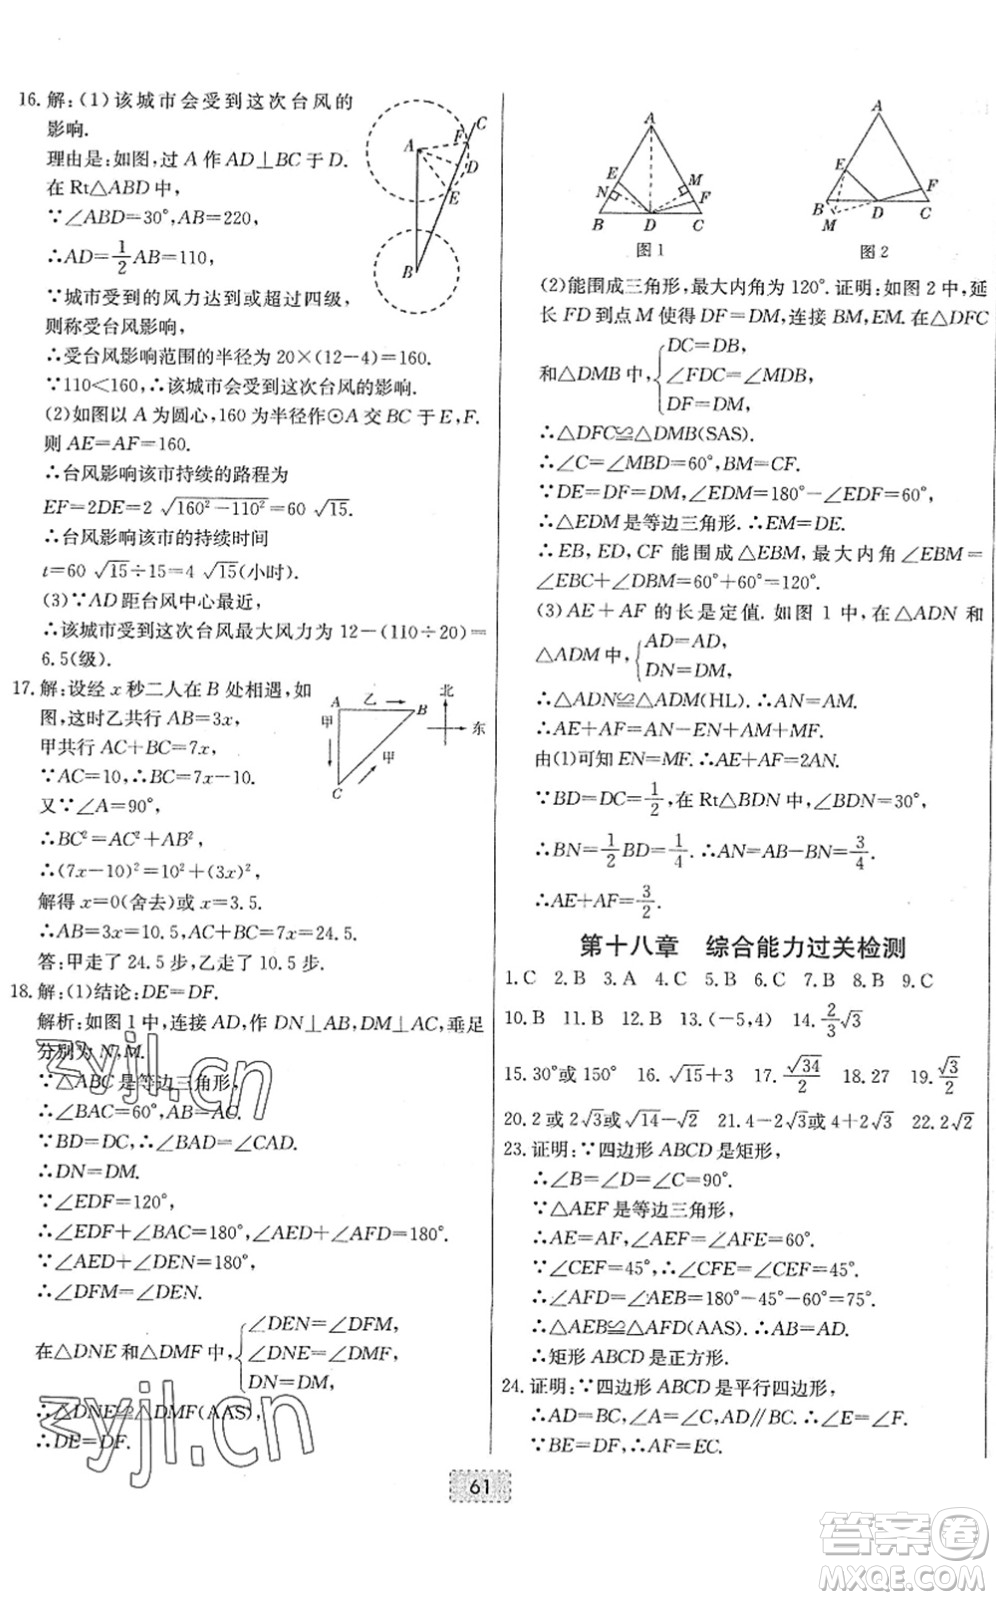 16. 解:(1)该城市会受到这次台风的
影响.
理由是:如图,过 A 作 AD⊥BC 于 D.
在 Rt△ABD 中,
∵∠ABD=30°,AB=220,
∴AD=1/2AB=110,
∵城市受到的风力达到或超过四级,
则称受台风影响,
∴受台风影响范围的半径为 20×(12-4)=160.
∵110<160,∴该城市会受到这次台风的影响.
(2)如图以 A 为圆心,160 为半径作⊙A 交 BC 于 E,F.
则 AE=AF=160.
∴台风影响该市持续的路程为
EF=2DE=2 √(160²-110²)=60 √15.
∴台风影响该市的持续时间
t=60 √15÷15=4 √15(小时).
(3)∵AD 距台风中心最近,
∴该城市受到这次台风最大风力为 12-(110÷20)=
6.5(级).
A
B
C
D
E
F
17. 解:设经 x 秒二人在 B 处相遇,如
图,这时乙共行 AB=3x,
甲共行 AC+BC=7x,
∵AC=10,∴BC=7x-10.
又∵∠A=90°,
∴BC²=AC²+AB²,
∴(7x-10)²=10²+(3x)²,
解得 x=0(舍去)或 x=3.5.
∴AB=3x=10.5,AC+BC=24.5.
答:甲走了 24.5 步,乙走了 10.5 步.
A 乙 B 北
甲 东
甲
C
18. 解:(1)结论:DE=DF.
解析:如图 1 中,连接 AD,作 DN⊥AB,DM⊥AC,垂足
分别为 N,M.
∵△ABC 是等边三角形,
∴∠BAC=60°,AB=AC.
∵BD=DC,∴∠BAD=∠CAD.
∴DN=DM.
∵∠EDF=120°,
∴∠EDF+∠BAC=180°,∠AED+∠AFD=180°.
∵∠AED+∠DEN=180°,
∴∠DFM=∠DEN.
在△DNE 和△DMF 中,{∠DEN=∠DFM,
∠DNE=∠DMF,
DN=DM,
∴△DNE≌△DMF(AAS).
∴DE=DF.
A
E M
N F
B D C
图 1
A
E
F
B D C
M
图 2
(2)能围成三角形,最大内角为 120°. 证明:如图 2 中,延
长 FD 到点 M 使得 DF=DM,连接 BM,EM. 在△DFC
和△DMB 中,{DC=DB,
∠FDC=∠MDB,
DF=DM,
∴△DFC≌△DMB(SAS).
∴∠C=∠MBD=60°,BM=CF.
∵DE=DF=DM,∠EDM=180°-∠EDF=60°,
∴△EDM 是等边三角形. ∴EM=DE.
∴EB,ED,CF 能围成△EBM,最大内角∠EBM=
∠EBC+∠DBM=60°+60°=120°.
(3)AE+AF 的长是定值. 如图 1 中,在△ADN 和
△ADM 中,{AD=AD,
DN=DM,
∴△ADN≌△ADM(HL). ∴AN=AM.
∴AE+AF=AN-EN+AM+MF.
由(1)可知 EN=MF. ∴AE+AF=2AN.
∵BD=DC=1/2,在 Rt△BDN 中,∠BDN=30°,
∴BN=1/2BD=1/4. ∴AN=AB-BN=3/4.
∴AE+AF=3/2.
第十八章 综合能力过关检测
1. C 2. B 3. A 4. C 5. B 6. C 7. B 8. B 9. C
10. B 11. B 12. B 13. (-5,4) 14. 2/3√3
15. 30°或 150° 16. √15+3 17. √34/2 18. 27 19. √3/2
20. 2 或 2√3或√14-√2 21. 4-2√3或 4+2√3 22. 2√2
23. 证明:∵四边形 ABCD 是矩形,
∴∠B=∠D=∠C=90°.
∵△AEF 是等边三角形,
∴AE=AF,∠AEF=∠AFE=60°.
∵∠CEF=45°,∴∠CFE=∠CEF=45°.
∴∠AFD=∠AEB=180°-45°-60°=75°.
∴△AEB≌△AFD(AAS). ∴AB=AD.
∴矩形 ABCD 是正方形.
24. 证明:∵四边形 ABCD 是平行四边形,
∴AD=BC,∠A=∠C,AD∥BC. ∴∠E=∠F.
∵BE=DF,∴AF=EC.
61
zyjl.cn
zyjl.cn
答案圈
MXQE.COM